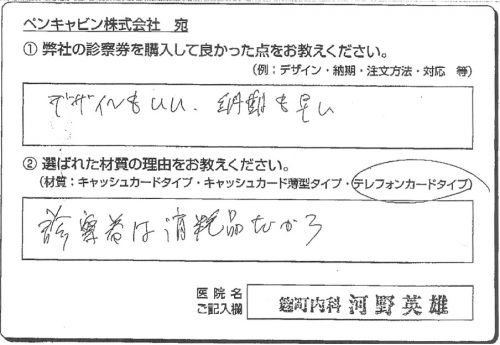 ペンキャビン株式会社 宛
① 弊社の診察券を購入して良かった点をお教えください。
(例：デザイン・納期・注文方法・対応 等)
デザインもいい、納期も早い
② 選ばれた材質の理由をお教えください。
(材質：キャッシュカードタイプ・キャッシュカード薄型タイプ・テレフォンカードタイプ)
診察券は消耗品だから
医院名
ご記入欄
麹町内科 河野英雄